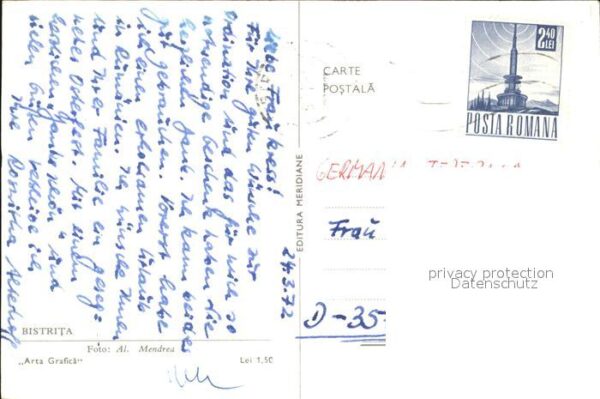 Liebe Frau Kress!
Für Ihre guten Wünsche zur
Ordination und das für mich so
notwendige Geschenk haben Sie
herzlichen Dank. Ich kann beides
gut gebrauchen. Vorerst habe
ich einen erholsamen Urlaub
in Rumänien. Ich wünsche Ihnen
und Ihrer Familie ein geseg-
netes Osterfest. Mit einem
herzlichen Dankeschön und
vielen Grüßen verbleibe ich
Ihre Roswitha
24.3.72
BISTRIȚA
Foto: Al. Mendrea
„Arta Grafică"
Lei 1,50
EDITURA MERIDIANE
CARTE
POȘTALĂ
2,40
LEI
POSTA ROMANA
GERMANIA
Frau
D-35-
privacy protection
Datenschutz